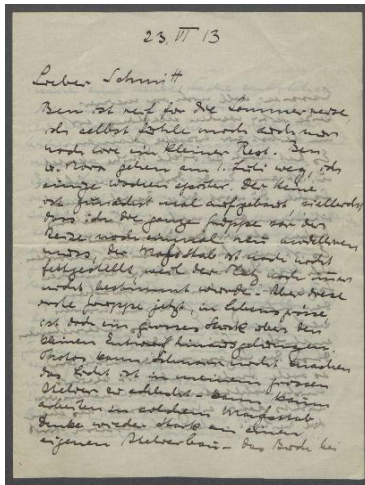 23. VI 13
Lieber Schmitt
Ben ist reif für die Sommerreise,
ich selbst fühle mich auch nur
noch wie ein kleiner Rest. Ben
u. Nora gehen am 1. Juli weg, ich
einige Wochen später. Der
ist zunächst mal aufgebaut vielleicht
dass ich die ganze Gruppe vor der
Reise noch einmal neu
muss, der Maßstab ist noch nicht
festgestellt, weil der Platz noch immer
nicht bestimmt wurde. Aber diese
erste Gruppe jetzt, in Lebensgrösse
ist doch ein grosses Stück über den
kleinen Entwurf hinausgedrungen
Photos kann man nicht machen
das Licht ist in meinem grossen
Atelier zu schlecht - kann kaum
arbeiten in solchem Maßstab
denke wieder stark an einen
eigenen Atelierbau - das Bode bei